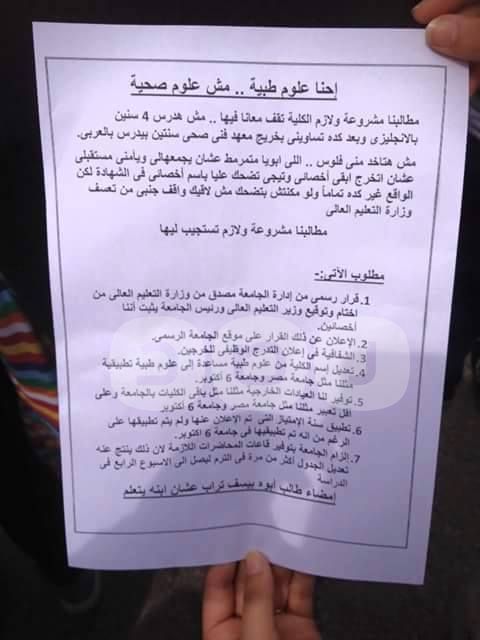 إحنا علوم طبية .. مش علوم صحية
مطالبنا مشروعة ولازم الكلية تقف معانا فيها .. مش هدرس 4 سنين
بالانجليزى وبعد كده تساوينى بخريج معهد فنى صحى سنتين بيدرس بالعربى.
مش هتاخد منى فلوس .. اللى ابويا متمرمط عشان يجمعهالى ويأمنى مستقبلى
عشان اتخرج ابقى أخصائى وتيجى تضحك عليا باسم أخصائى فى الشهادة لكن
الواقع غير كده تماماً ولو مكنتش بتضحك مش لاقيك واقف جنبى من تعسف
وزارة التعليم العالى
مطالبنا مشروعة ولازم تستجيب ليها
مطلوب الآتى:-
1. قرار رسمى من إدارة الجامعة مصدق من وزارة التعليم العالى من
اختام وتوقيع وزير التعليم العالى ورئيس الجامعة يثبت أننا
أخصائين.
2. الإعلان عن ذلك القرار على موقع الجامعة الرسمى.
3. الشفافية فى إعلان التدرج الوظيفى للخرجين.
4. تعديل إسم الكلية من علوم طبية مساعدة إلى علوم طبية تطبيقية
مثلنا مثل جامعة مصر وجامعة 6 أكتوبر.
5. توفير لنا العيادات الخارجية مثلنا مثل باقى الكليات بالجامعة وعلى
أقل تعبير مثلنا مثل جامعة مصر وجامعة 6 أكتوبر
6. تطبيق سنة الإمتياز التى تم الإعلان عنها ولم يتم تطبيقها على
الرغم من انه تم تطبيقها فى جامعة 6 أكتوبر.
7. إلزام الجامعة بتوفير قاعات المحاضرات اللازمة لان ذلك ينتج عنه
تعديل الجدول أكثر من مرة فى الترم ليصل الى الاسبوع الرابع فى
الدراسة
إمضاء طالب أبوه بيسف تراب عشان ابنه يتعلم